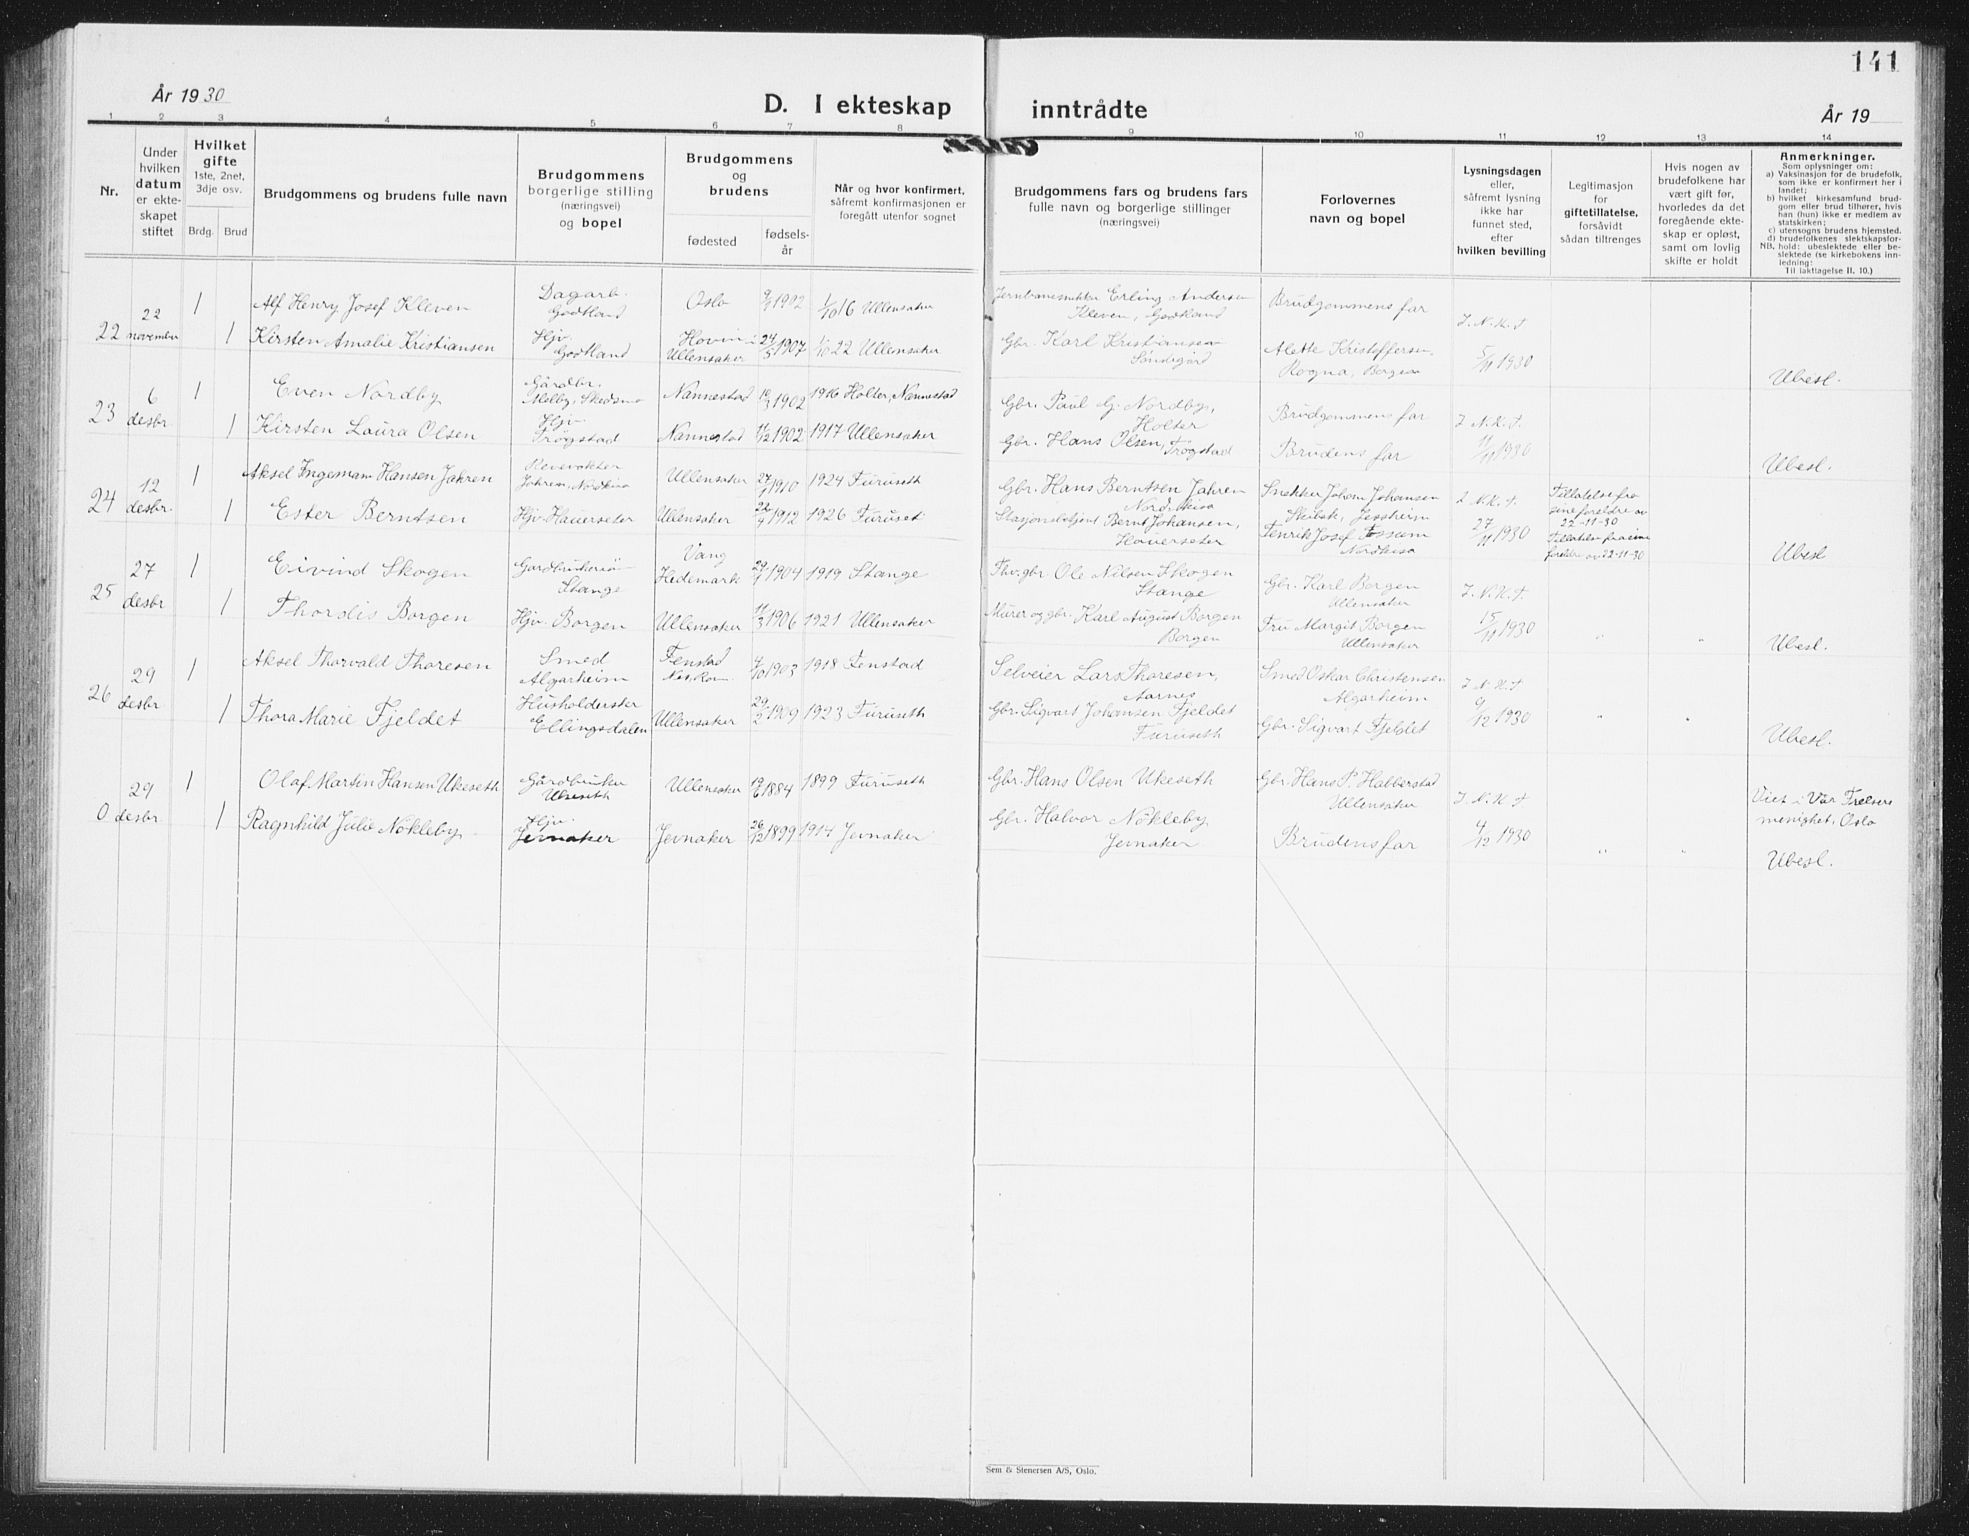 141
År 1930
D. I ekteskap inntrådte
År 19
1 2 3 4 5 6 7 8 9 10 11 12 13 14
Nr.
Under hvilken datum er ekteskapet stiftet
Hvilket gifte
1ste, 2net, 3dje osv.
Brdg. Brud
Brudgommens og brudens fulle navn
Brudgommens borgerlige stilling (næringsvei) og bopel
Brudgommens og brudens
fødested
fødselsår
Når og hvor konfirmert, såfremt konfirmasjonen er foregått utenfor sognet
Brudgommens fars og brudens fars fulle navn og borgerlige stillinger (næringsvei)
Forlovernes navn og bopel
Lysningsdagen eller, såfremt lysning ikke har funnet sted, efter hvilken bevilling
Legitimasjon for giftetillatelse, forsåvidt sådan tiltrenges
Hvis nogen av brudefolkene har vært gift før, hvorledes da det foregående ekteskap er opløst, samt om lovlig skifte er holdt
Anmerkninger.
Som oplysninger om:
a) Vaksinasjon for de brudefolk, som ikke er konfirmert her i landet;
b) hvilket kirkesamfund brudgom eller brud tilhører, hvis han (hun) ikke er medlem av statskirken;
c) utensogns brudens hjemsted.
d) brudefolkenes slektskapsforhold: ubeslektede eller beslektede (se kirkebokens innledning:
NB. Til iakttagelse II. 10.)
22
22 november
1 Alf Henry Josef Kleven
Dagarb. Godkland
Oslo 9/7 1902 1/10 16 Ullensaker
Erling Andersen Kleven, Godkland
Brudgommens far
1 Kirsten Amalie Kristiansen
Hjv. Godkland
Hovin i Ullensaker 24/5 1907 1/10 22 Ullensaker
Gbr. Karl Kristiansen Søndegård
Alette Kristoffersen, Rogna, Borgen
I. N. K. T 5/11 1930
Ubesl.
23
6 desbr
1 Even Nordby
Gårdbr. Skedsmo
Nannestad 1902 1916 Holter, Nannestad
Gbr. Paul G. Nordby, Holter
Brudgommens far
1 Kirsten Laura Olsen
Hjv. Trøgstad
Nannestad 11/2 1902 1917 Ullensaker
Gbr. Hans Olsen, Trøgstad
Brudens far
I. N. K. T. 11/11 1930
Ubesl.
24
12 desbr.
1 Aksel Ingeman Hansen Jahren
Revevokter Jahren, Nordkisa
Ullensaker 27/1 1910 1924 Furuseth
Gbr. Hans Berntsen Jahren Nordkisa
Snekker Johan Johansen Skibsk, Jessheim
Tillatelse fra sine foreldre av 22-11-30
1 Ester Berntsen
Hjv. Hauerseter
Ullensaker 22/4 1912 1926 Furuset
Stasjonsbetjent Bernt Johansen, Hauerseter
Henrik Josef Fossum Nordkisa
I. N. K. T. 27/11 1930
Tillatelse fra sine foreldre av 22-11-30
Ubesl
25
27 desbr
1 Eivind Skogen
Gardbrukersøn Stange
Vang Hedemark 29/1 1904 1919 Stange
Fhv. gbr Ole Nilsen Skogen Stange
Gbr. Karl Borgen Ullensaker
1 Thordis Borgen
Hjv. Borgen
Ullensaker 11/3 1906 1921 Ullensaker
Murer og gbr. Karl August Borgen Borgen
Fru Margit Borgen Ullensaker
I. N. K. T. 15/11 1930
" "
Ubesl.
26
29 desbr
1 Aksel Thorvald Thoresen
Smed Algarheim
Fenstad Nes, Rom. 4/10 1903 1918 Fenstad
Selveier Lars Thoresen, Aarnes
Smed Oskar Christensen Algarheim
1 Thora Marie Fjeldet
Husholderske Ellingsdalen
Ullensaker 29/2 1909 1923 Furuseth
Gbr. Sigvart Johansen Fjeldet Furuseth
Gbr. Sigvart Fjeldet
I. N. K. T 9/12 1930
" "
Ubesl.
0
29 desbr
1 Olaf Martin Hansen Ukeseth
Gårdbruker Ukeseth
Ullensaker 19/6 1884 1899 Furuseth
Gbr. Hans Olsen Ukeseth
Gbr. Hans P. Habberstad Ullensaker
Viet i Vår Frelsers menighet, Oslo
1 Ragnhild Julie Nökleby
Hjv. Jevnaker
Jevnaker 26/12 1899 1914 Jevnaker
Gbr. Halvor Nökleby Jevnaker
Brudens far
I. N. K. T 4/12 1930
" "
Ubesl.
Sem & Stenersen A/S, Oslo.